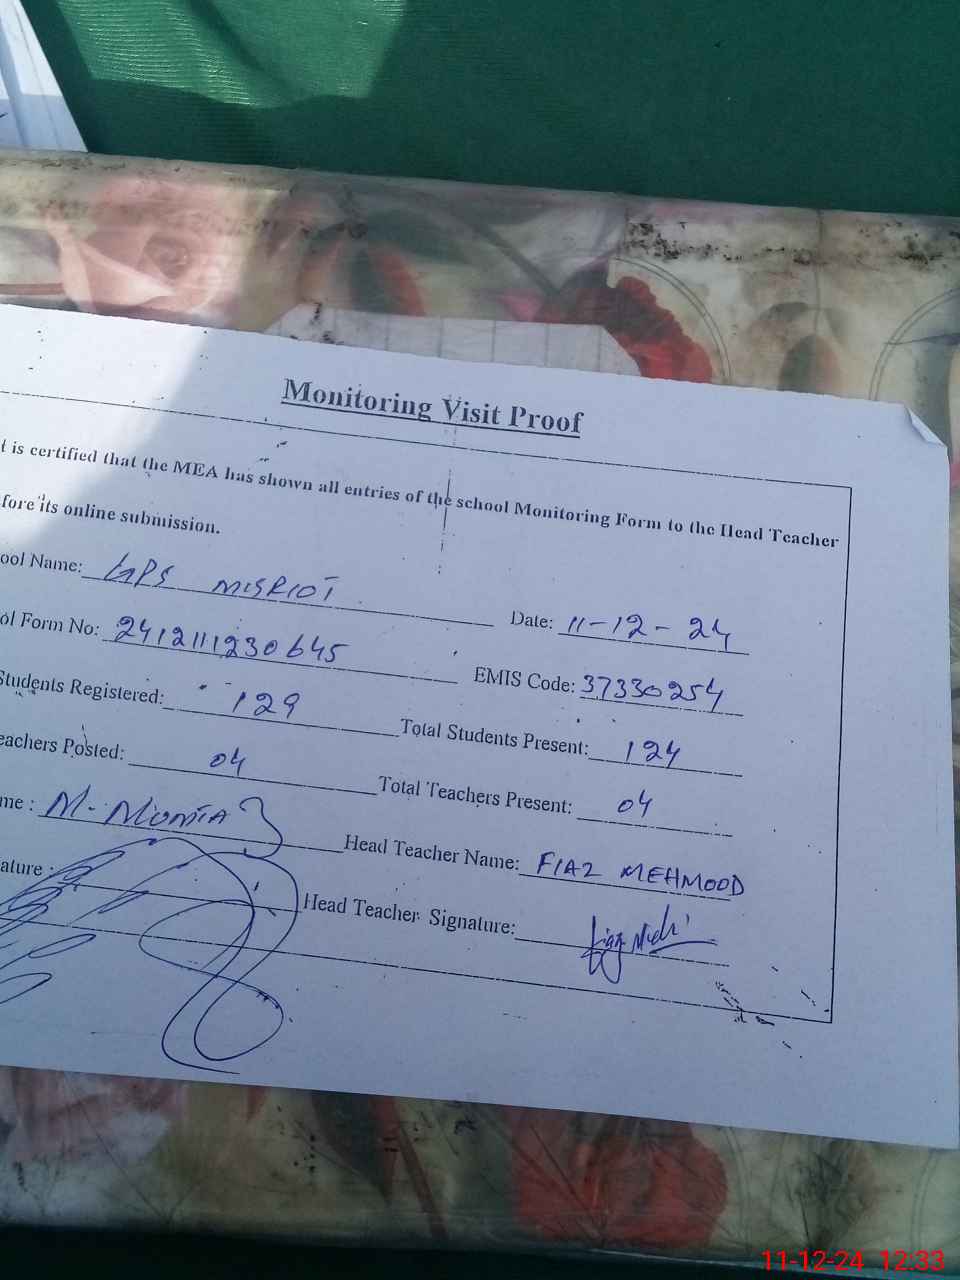 Monitoring Visit Proof
t is certified that the MEA has shown all entries of the school Monitoring Form to the Head Teacher
fore its online submission.
ool Name: GPS MISRIOT Date: 11-12-24
ol Form No: 2412111230645 EMIS Code: 37330254
Students Registered: 129 Total Students Present: 124
eachers Posted: 04 Total Teachers Present: 04
me : M. MUMTAZ Head Teacher Name: FIAZ MEHMOOD
ature : Head Teacher Signature:
11-12-24 12:33